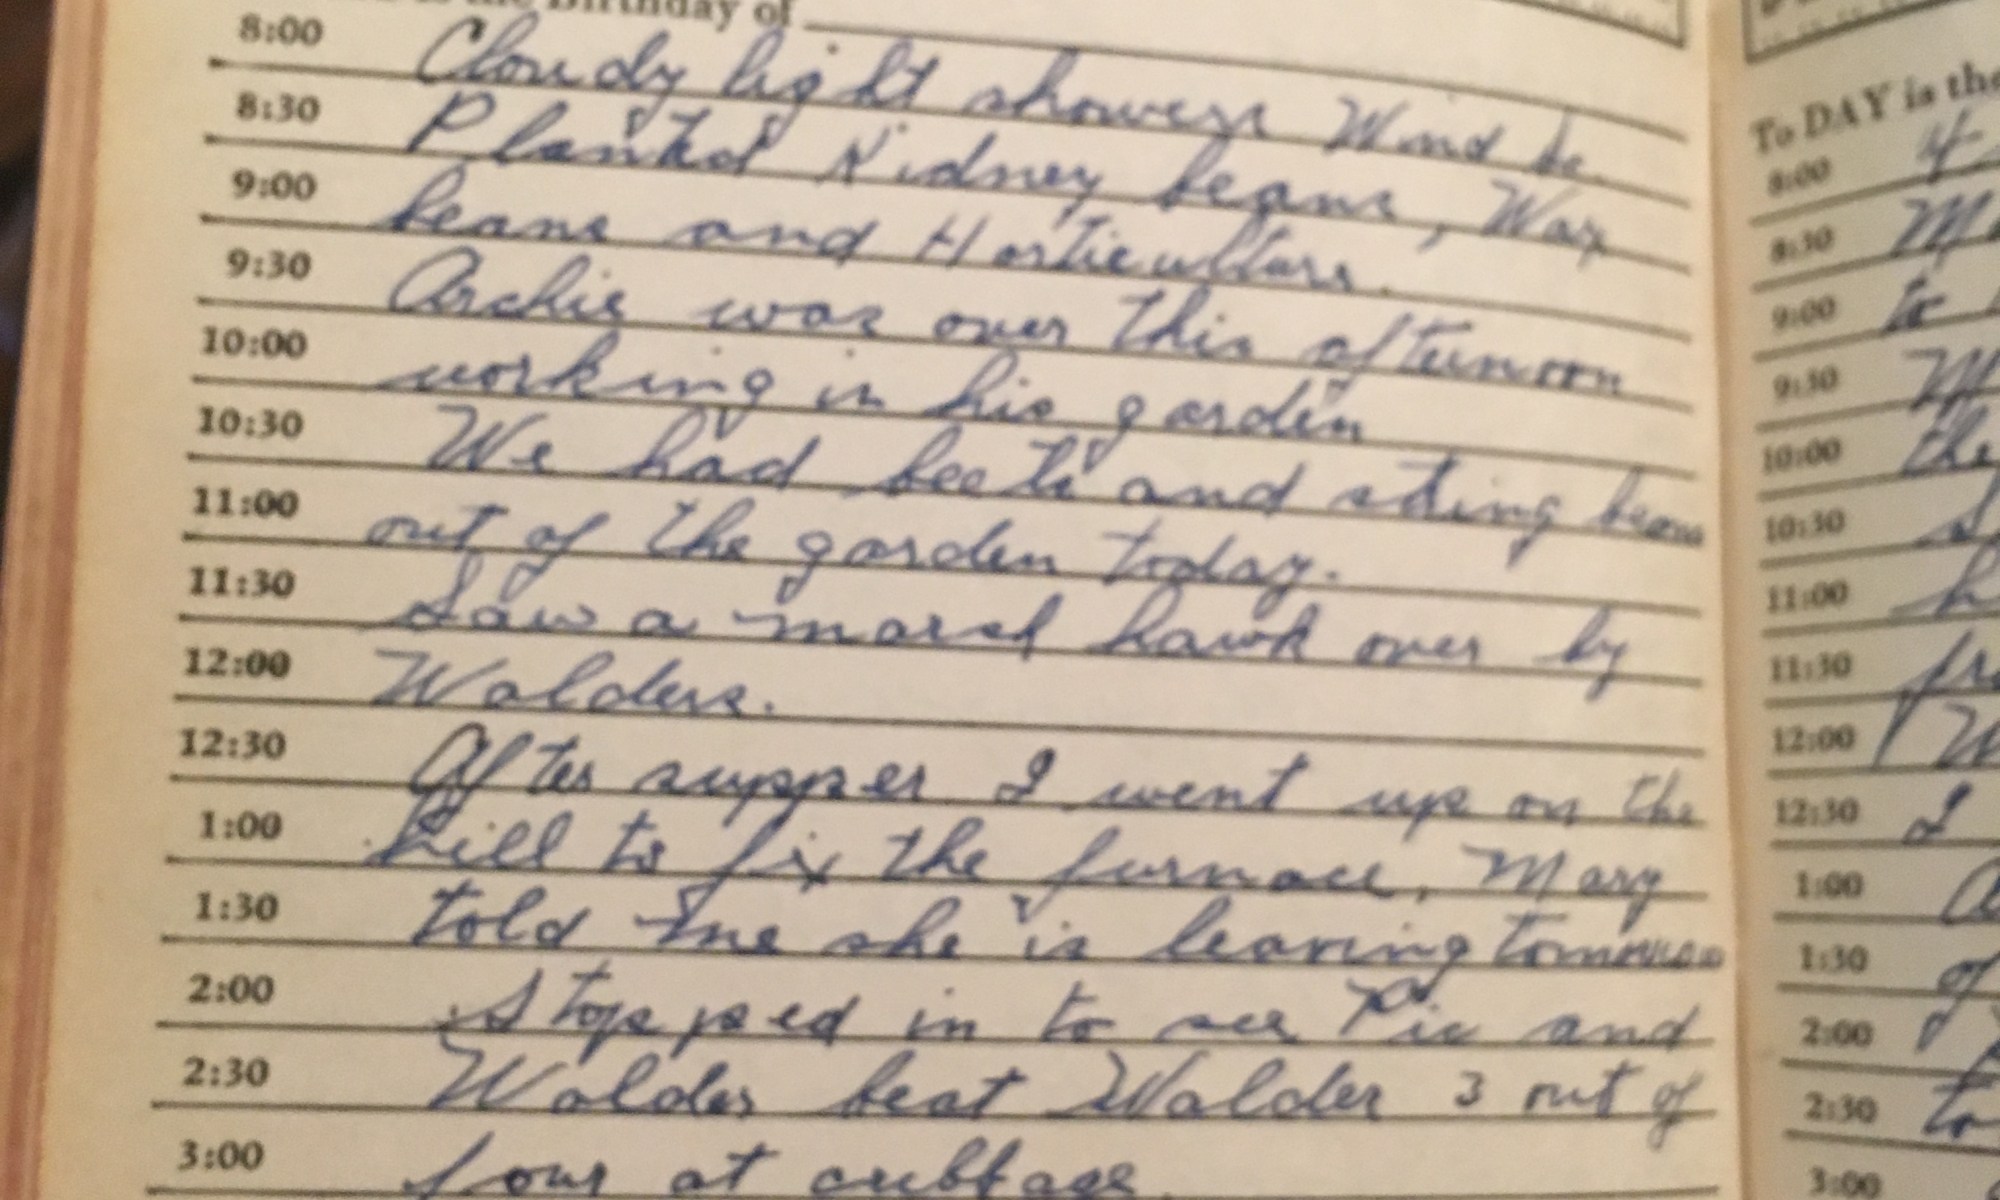 Birthday of
8:00 Cloudy light showers Wind
8:30 Planted Kidney beans, Wax
9:00 beans and Horticulture.
9:30 Archie was over this afternoon
10:00 working in his garden
10:30 We had beets and string beans
11:00 out of the garden today.
11:30 Saw a marsh hawk over by
12:00 Walders.
12:30 After supper I went up on the
1:00 hill to fix the furnace, Mary
1:30 told me she is leaving tomorrow
2:00 Stopped in to see Pic and
2:30 Walder beat Walder 3 out of
3:00 four at cribbage.
To DAY is the
8:00
8:30
9:00 to
9:30
10:00 the
10:30
11:00
11:30
12:00
12:30 I
1:00
1:30 of
2:00
2:30 to
3:00